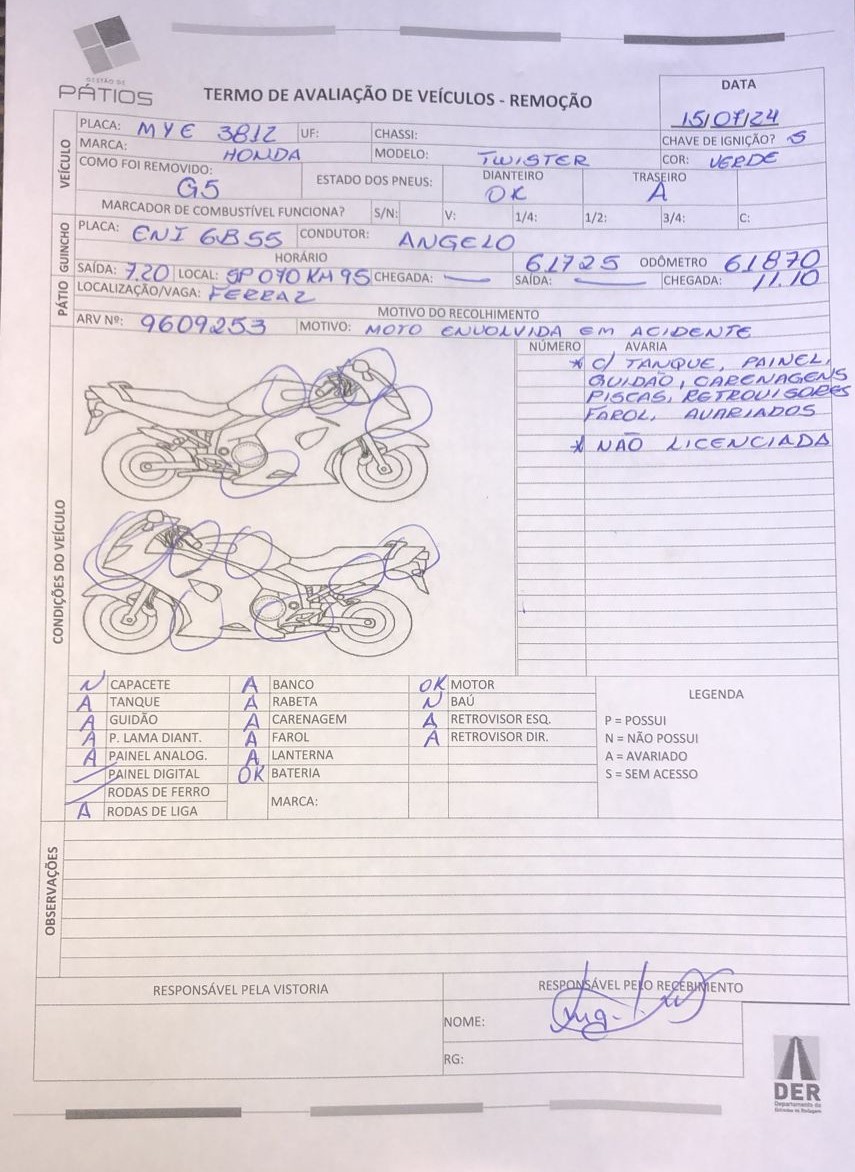 GESTÃO DE
PÁTIOS
TERMO DE AVALIAÇÃO DE VEÍCULOS - REMOÇÃO
DATA
15/07/24
VEÍCULO
PLACA: MYE 3812 UF: CHASSI: CHAVE DE IGNIÇÃO? S
MARCA: HONDA MODELO: TWISTER COR: VERDE
COMO FOI REMOVIDO: G5 ESTADO DOS PNEUS: DIANTEIRO OK TRASEIRO A
MARCADOR DE COMBUSTÍVEL FUNCIONA? S/N: V: 1/4: 1/2: 3/4: C:
GUINCHO
PLACA: ENI 6B55 CONDUTOR: ANGELO
HORÁRIO 61725 ODÔMETRO 61870
SAÍDA: 7.20 LOCAL: SP 070 KM 95 CHEGADA: — SAÍDA: — CHEGADA: 11.10
PÁTIO
LOCALIZAÇÃO/VAGA: FERRAZ
MOTIVO DO RECOLHIMENTO
ARV Nº: 9609253 MOTIVO: MOTO ENVOLVIDA EM ACIDENTE
CONDIÇÕES DO VEÍCULO
NÚMERO AVARIA
* C/ TANQUE, PAINEL,
GUIDÃO, CARENAGENS
PISCAS, RETROVISORES
FAROL, AVARIADOS
* NÃO LICENCIADA
N CAPACETE A BANCO OK MOTOR
A TANQUE A RABETA N BAÚ
A GUIDÃO A CARENAGEM A RETROVISOR ESQ.
A P. LAMA DIANT. A FAROL A RETROVISOR DIR.
A PAINEL ANALOG. A LANTERNA
PAINEL DIGITAL OK BATERIA
RODAS DE FERRO
MARCA:
A RODAS DE LIGA
LEGENDA
P = POSSUI
N = NÃO POSSUI
A = AVARIADO
S = SEM ACESSO
OBSERVAÇÕES
RESPONSÁVEL PELA VISTORIA RESPONSÁVEL PELO RECEBIMENTO
NOME:
RG:
DER
Departamento de
Estradas de Rodagem